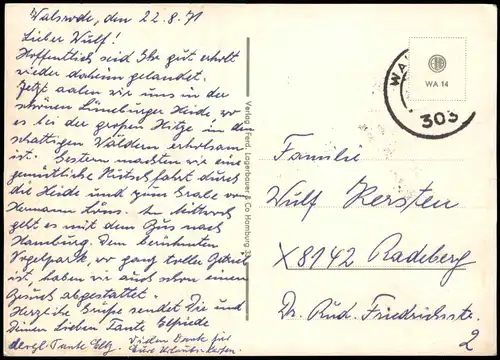 Walsrode, den 22.8.71
Lieber Wulf!
Hoffentlich seid Ihr gut erholt
wieder daheim gelandet.
Jetzt aalen wir uns in der
schönen Lüneburger Heide, wo
es bei der großen Hitze in den
schattigen Wäldern erholsam
ist. Gestern machten wir eine
gemütliche Kutschfahrt durch
die Heide und zum Grabe von
Hermann Löns. Am Mittwoch
geht es mit dem Bus nach
Hamburg. Dem berühmten
Vogelpark, wo ganz toller Betrieb
ist, haben wir auch schon einen
Besuch abgestattet.
Herzliche Grüße sendet Dir und
Deinen Lieben Tante Elfriede
dergl. Tante Elly. Vielen Dank für
Eure Urlaubs-Karten.
Verlag Ferd. Lagerbauer & Co Hamburg
WA
303
WA 14
Familie
Wulf Kersten
X8142 Radeberg
Dr. Rud. Friedrichsstr.
2